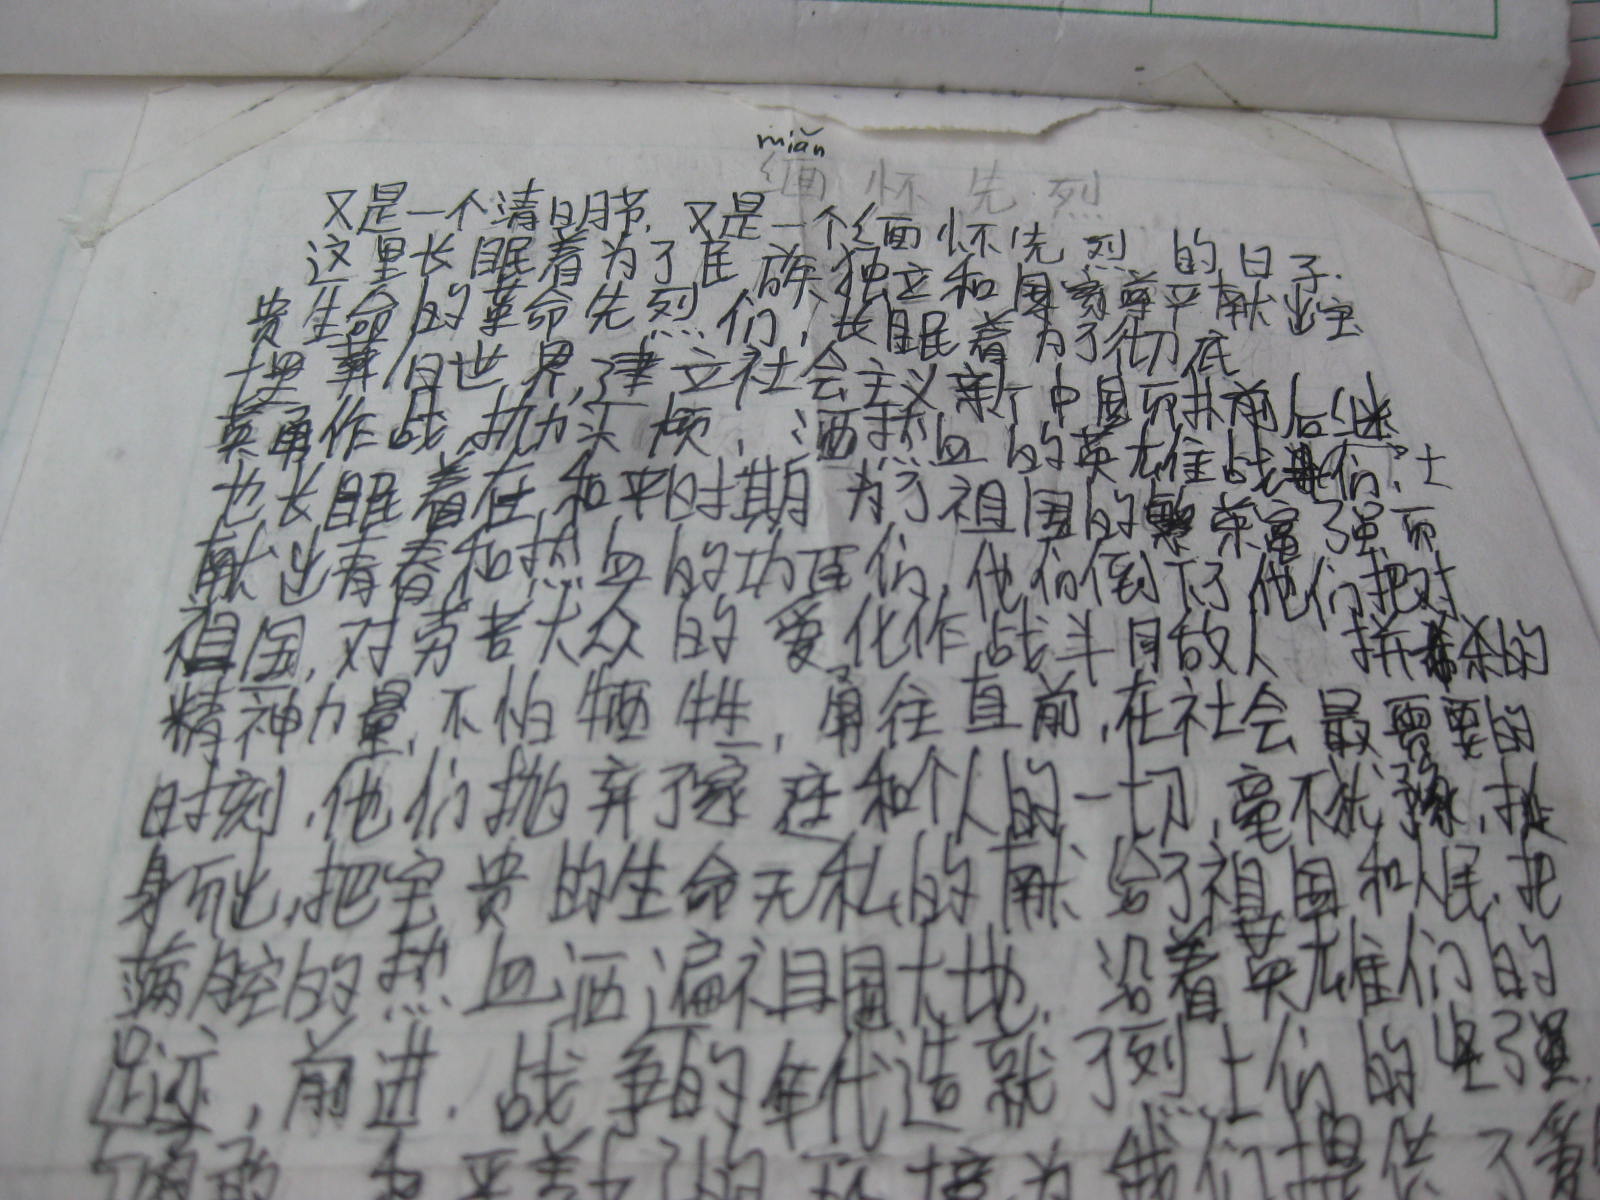 miǎn
缅怀先烈
又是一个清明节，又是一个缅怀先烈的日子.
这里长眠着为了民族独立和国家尊严献出宝
贵生命的革命先烈们，长眠着为了彻底
埋葬旧世界，建立社会主义新中国而扑前后继
英勇作战，抛头颅，洒热血的英雄战士们，
也长眠着在和平时期为了祖国的繁荣富强而
献出青春和热血的功臣们，他们倒下了他们把对
祖国，对劳苦大众的爱化作战斗目敌人拼杀的
精神力量，不怕牺牲，勇往直前，在社会最需要的
时刻，他们抛弃了家庭和个人的一切，毫不犹豫，挺
身而出，把宝贵的生命无私的献给了祖国和人民，把
满腔的热血洒遍祖国大地. 沿着英雄们的
足迹，前进. 战争的年代造就了烈士们的坚强，
为我们提供了